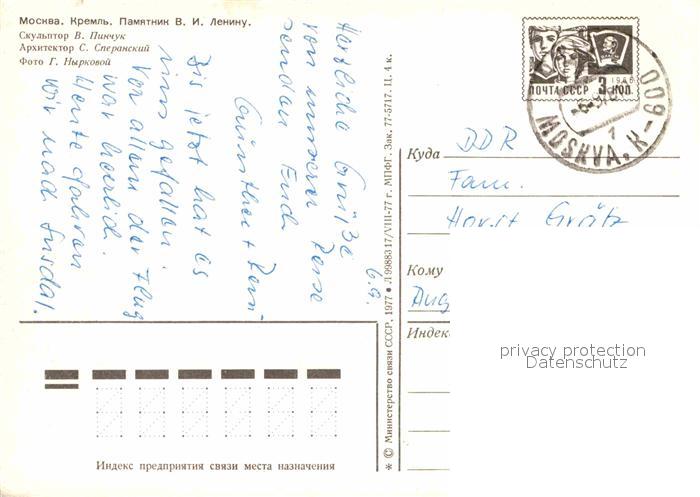 Москва. Кремль. Памятник В. И. Ленину.
Скульптор В. Пинчук
Архитектор С. Сперанский
Фото Г. Нырковой
6.9.
Herzliche Grüße
von unserer Reise
senden Euch
Günther + Rosi
Bis jetzt hat es
uns gefallen.
Vor allem der Flug
war herrlich.
Heute fahren
wir nach Susdal.
* © Министерство связи СССР, 1977 ● Л 99883 17/VIII-77 г. МПФГ. Зак. 77-5717. Ц. 4 к.
1966
ПОЧТА СССР 3 КОП.
MOSKVA. K-009
1
Куда DDR
Fam.
Horst Grätz
Кому
Aug
Индекс
privacy protection
Datenschutz
Индекс предприятия связи места назначения